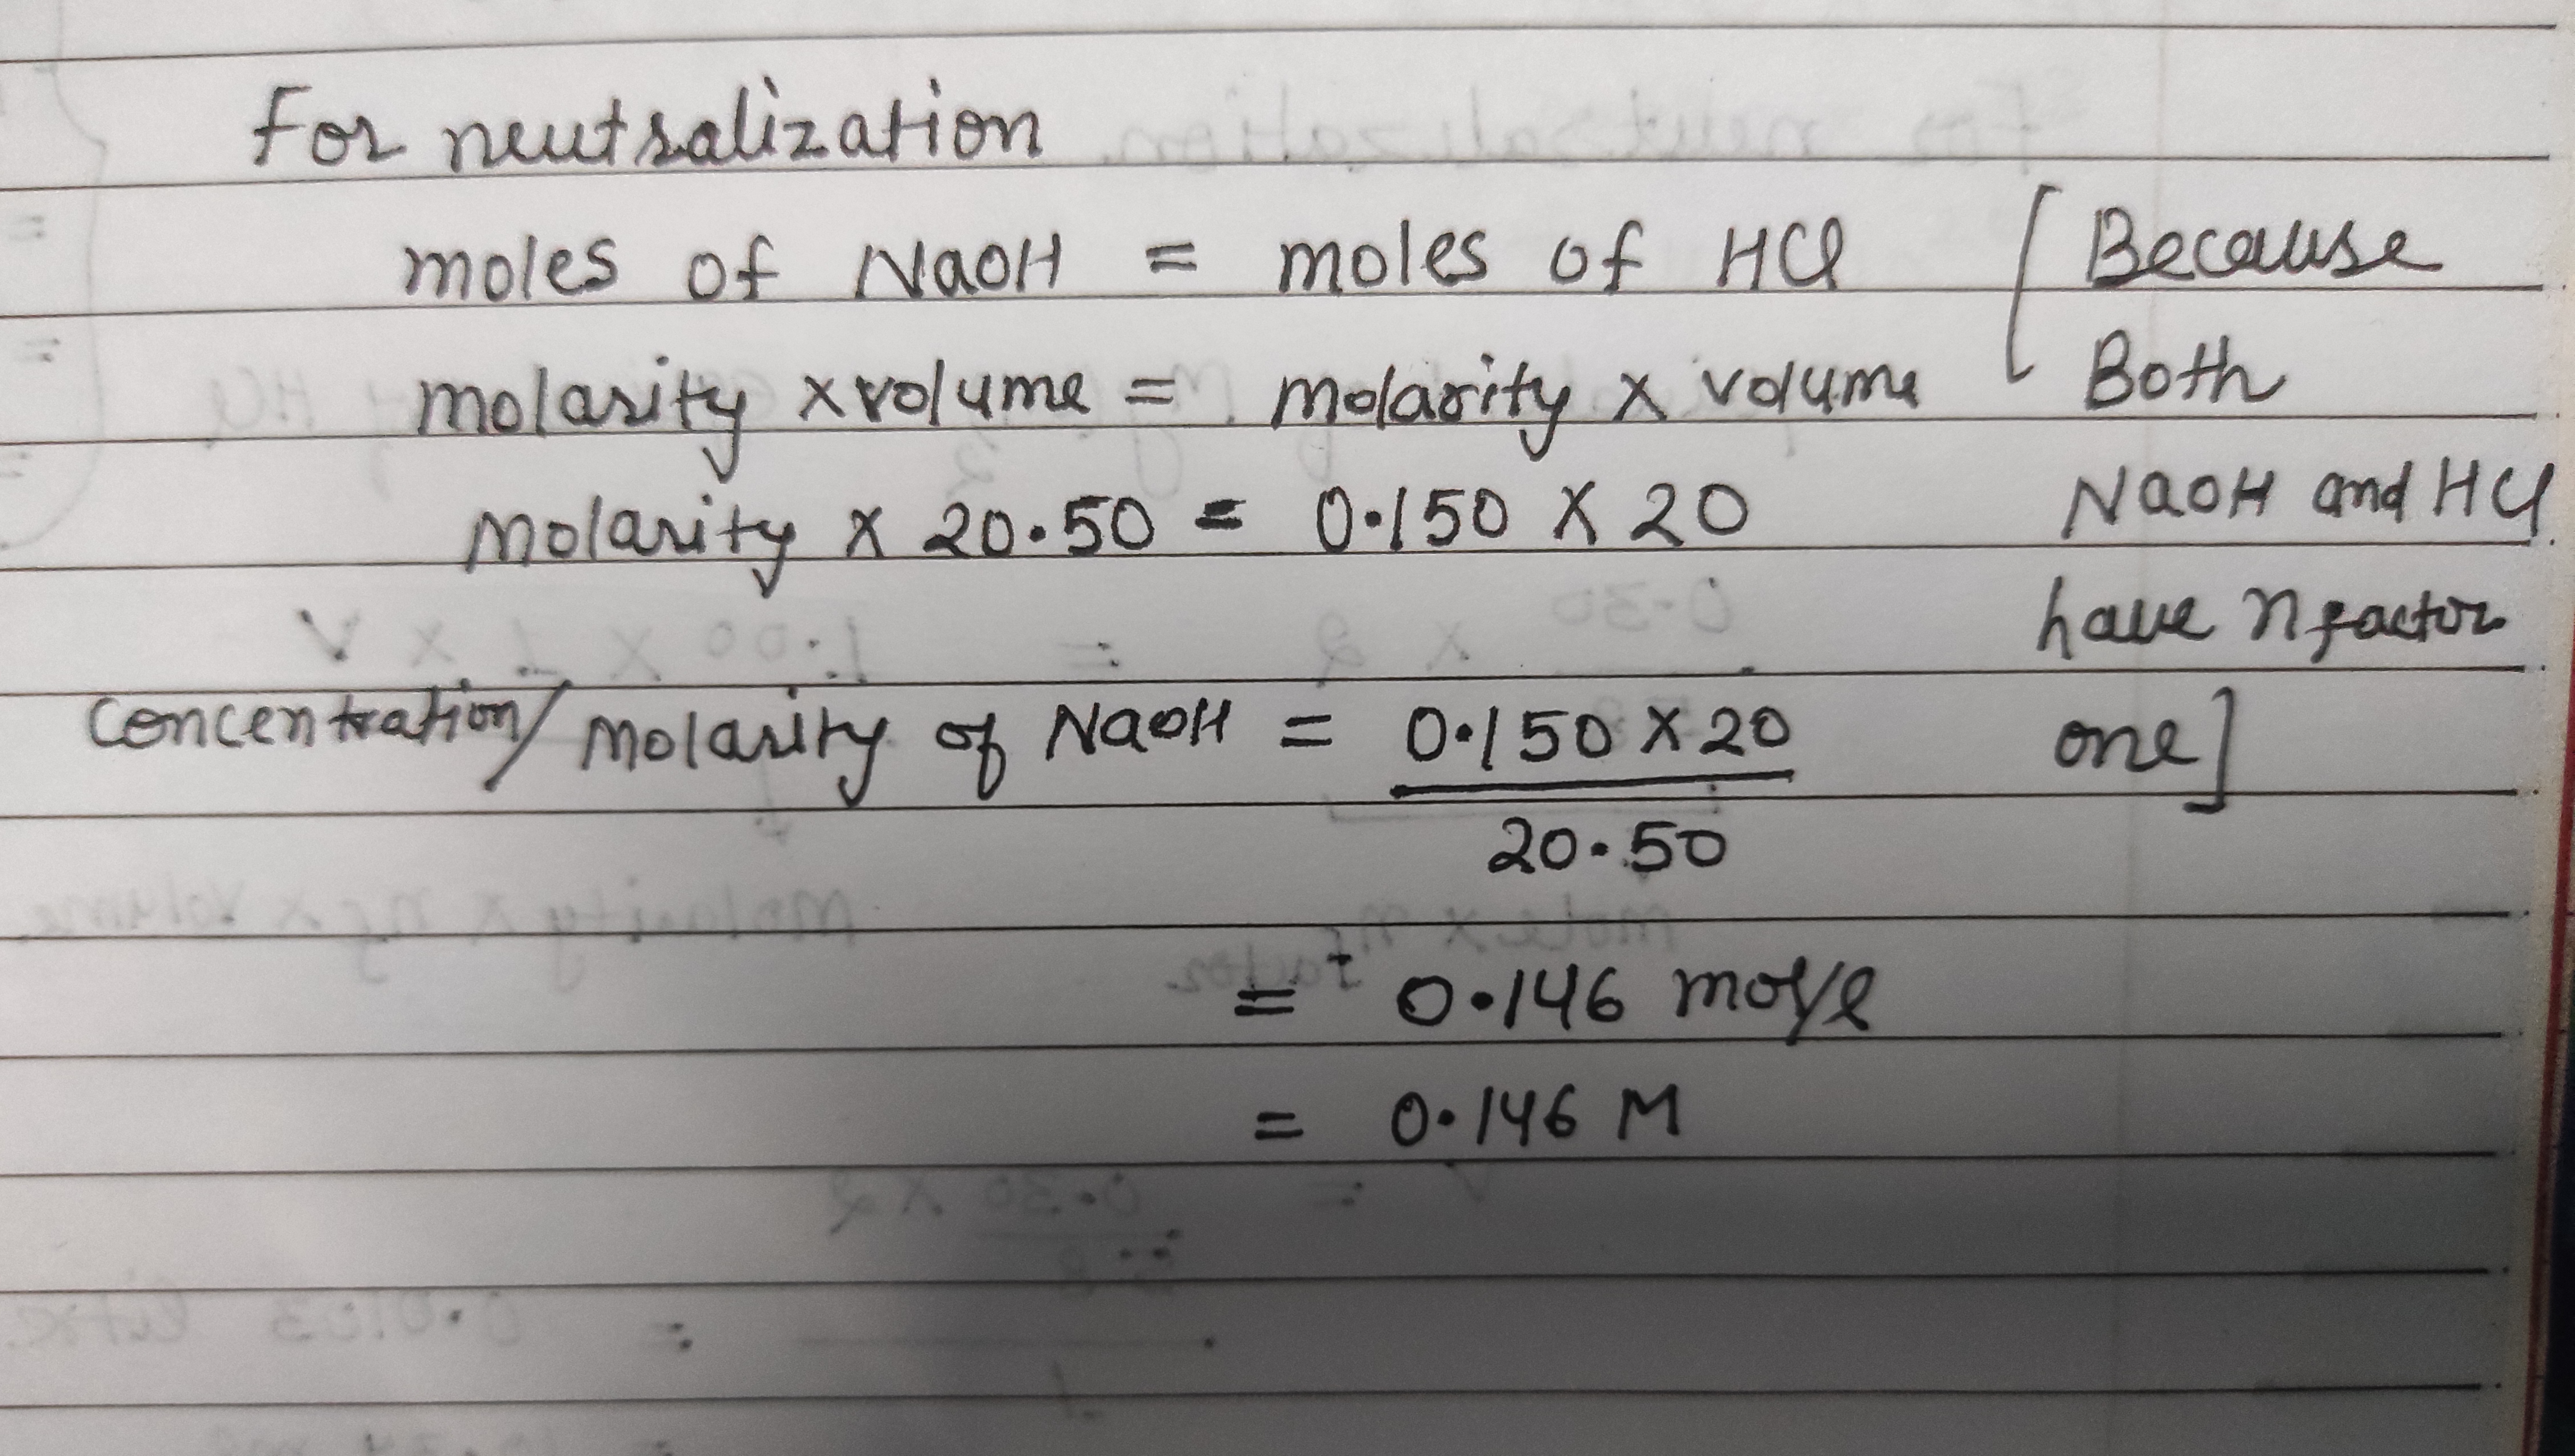 For neutralization
moles of NaOH = moles of HCl [Because
molarity x volume = molarity x volume Both
Molarity x 20.50 = 0.150 X 20 NaOH and HCl
have n factor
Concentration/ Molarity of NaOH = 0.150 X 20 one]
20.50
= 0.146 mol/l
= 0.146 M